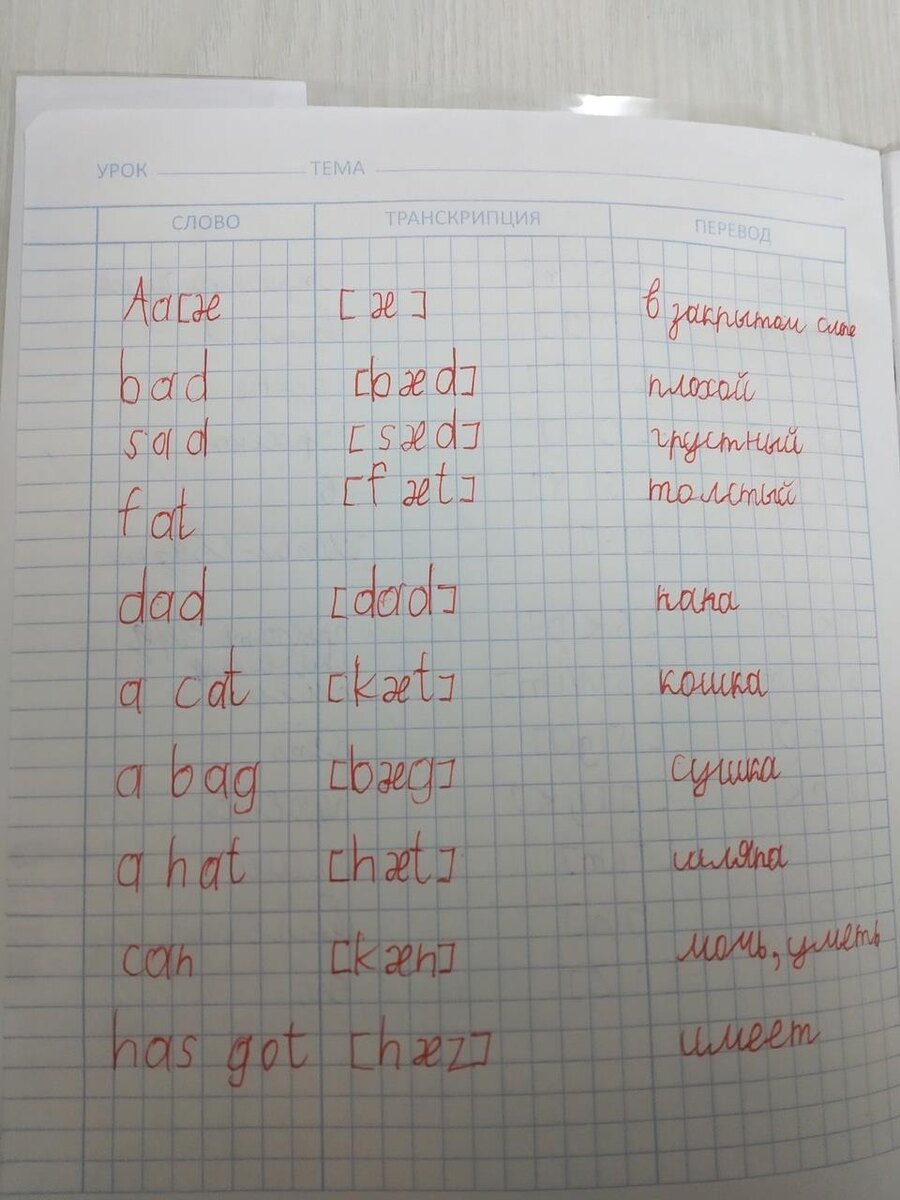 УРОК ТЕМА
СЛОВО ТРАНСКРИПЦИЯ ПЕРЕВОД
Aa[æ [æ] в закрытом слоге
bad [bæd] плохой
sad [sæd] грустный
fat [fæt] толстый
dad [dad] папа
a cat [kæt] кошка
a bag [bæg] сушка
a hat [hæt] шляпа
can [kæn] мочь, уметь
has got [hæz] имеет